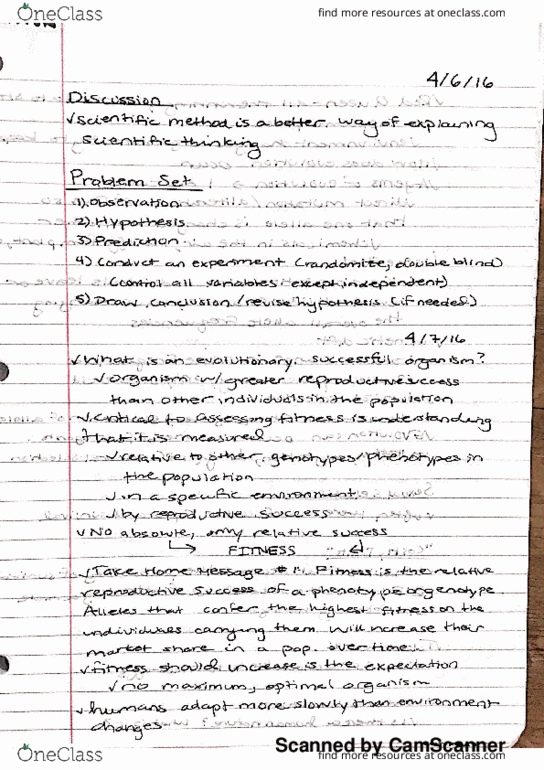 OneClass
find more resources at oneclass.com
4/6/16
Discussion
✓scientific method is a better way of explaining
scientific thinking
Problem Set
1) Observation
2) Hypothesis
3) Prediction
4) Conduct an experiment (randomize, double blind)
(control all variables except independent)
5) Draw conclusion / revise hypothesis (if needed)
4/7/16
✓What is an evolutionary successful organism?
✓organism w/ greater reproductive success
than other individuals in the population
✓Critical to assessing fitness is understanding
that it is measured
✓relative to other genotypes/phenotypes in
the population
✓in a specific environment
✓by reproductive success
✓No absolute, only relative success
FITNESS
✓Take Home Message #1: Fitness is the relative
reproductive success of a phenotype or genotype
Alleles that confer the highest fitness on the
individuals carrying them will increase their
market share in a pop. over time
✓fitness should increase is the expectation
✓no maximum, optimal organism
✓humans adapt more slowly than environment
changes
Scanned by CamScanner
OneClass
find more resources at oneclass.com